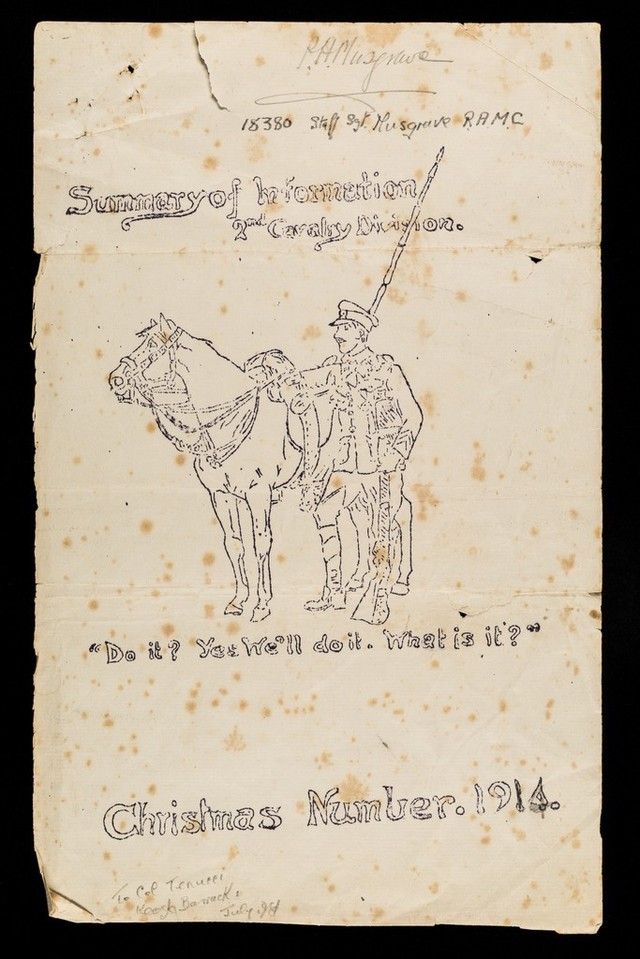 R.A. Musgrave
18380 Staff Sgt. Musgrave R.A.M.C
Summary of Information
2nd Cavalry Division.
"Do it? Yes We'll do it. What is it?"
Christmas Number. 1914.
To Col
Keogh Barracks
July